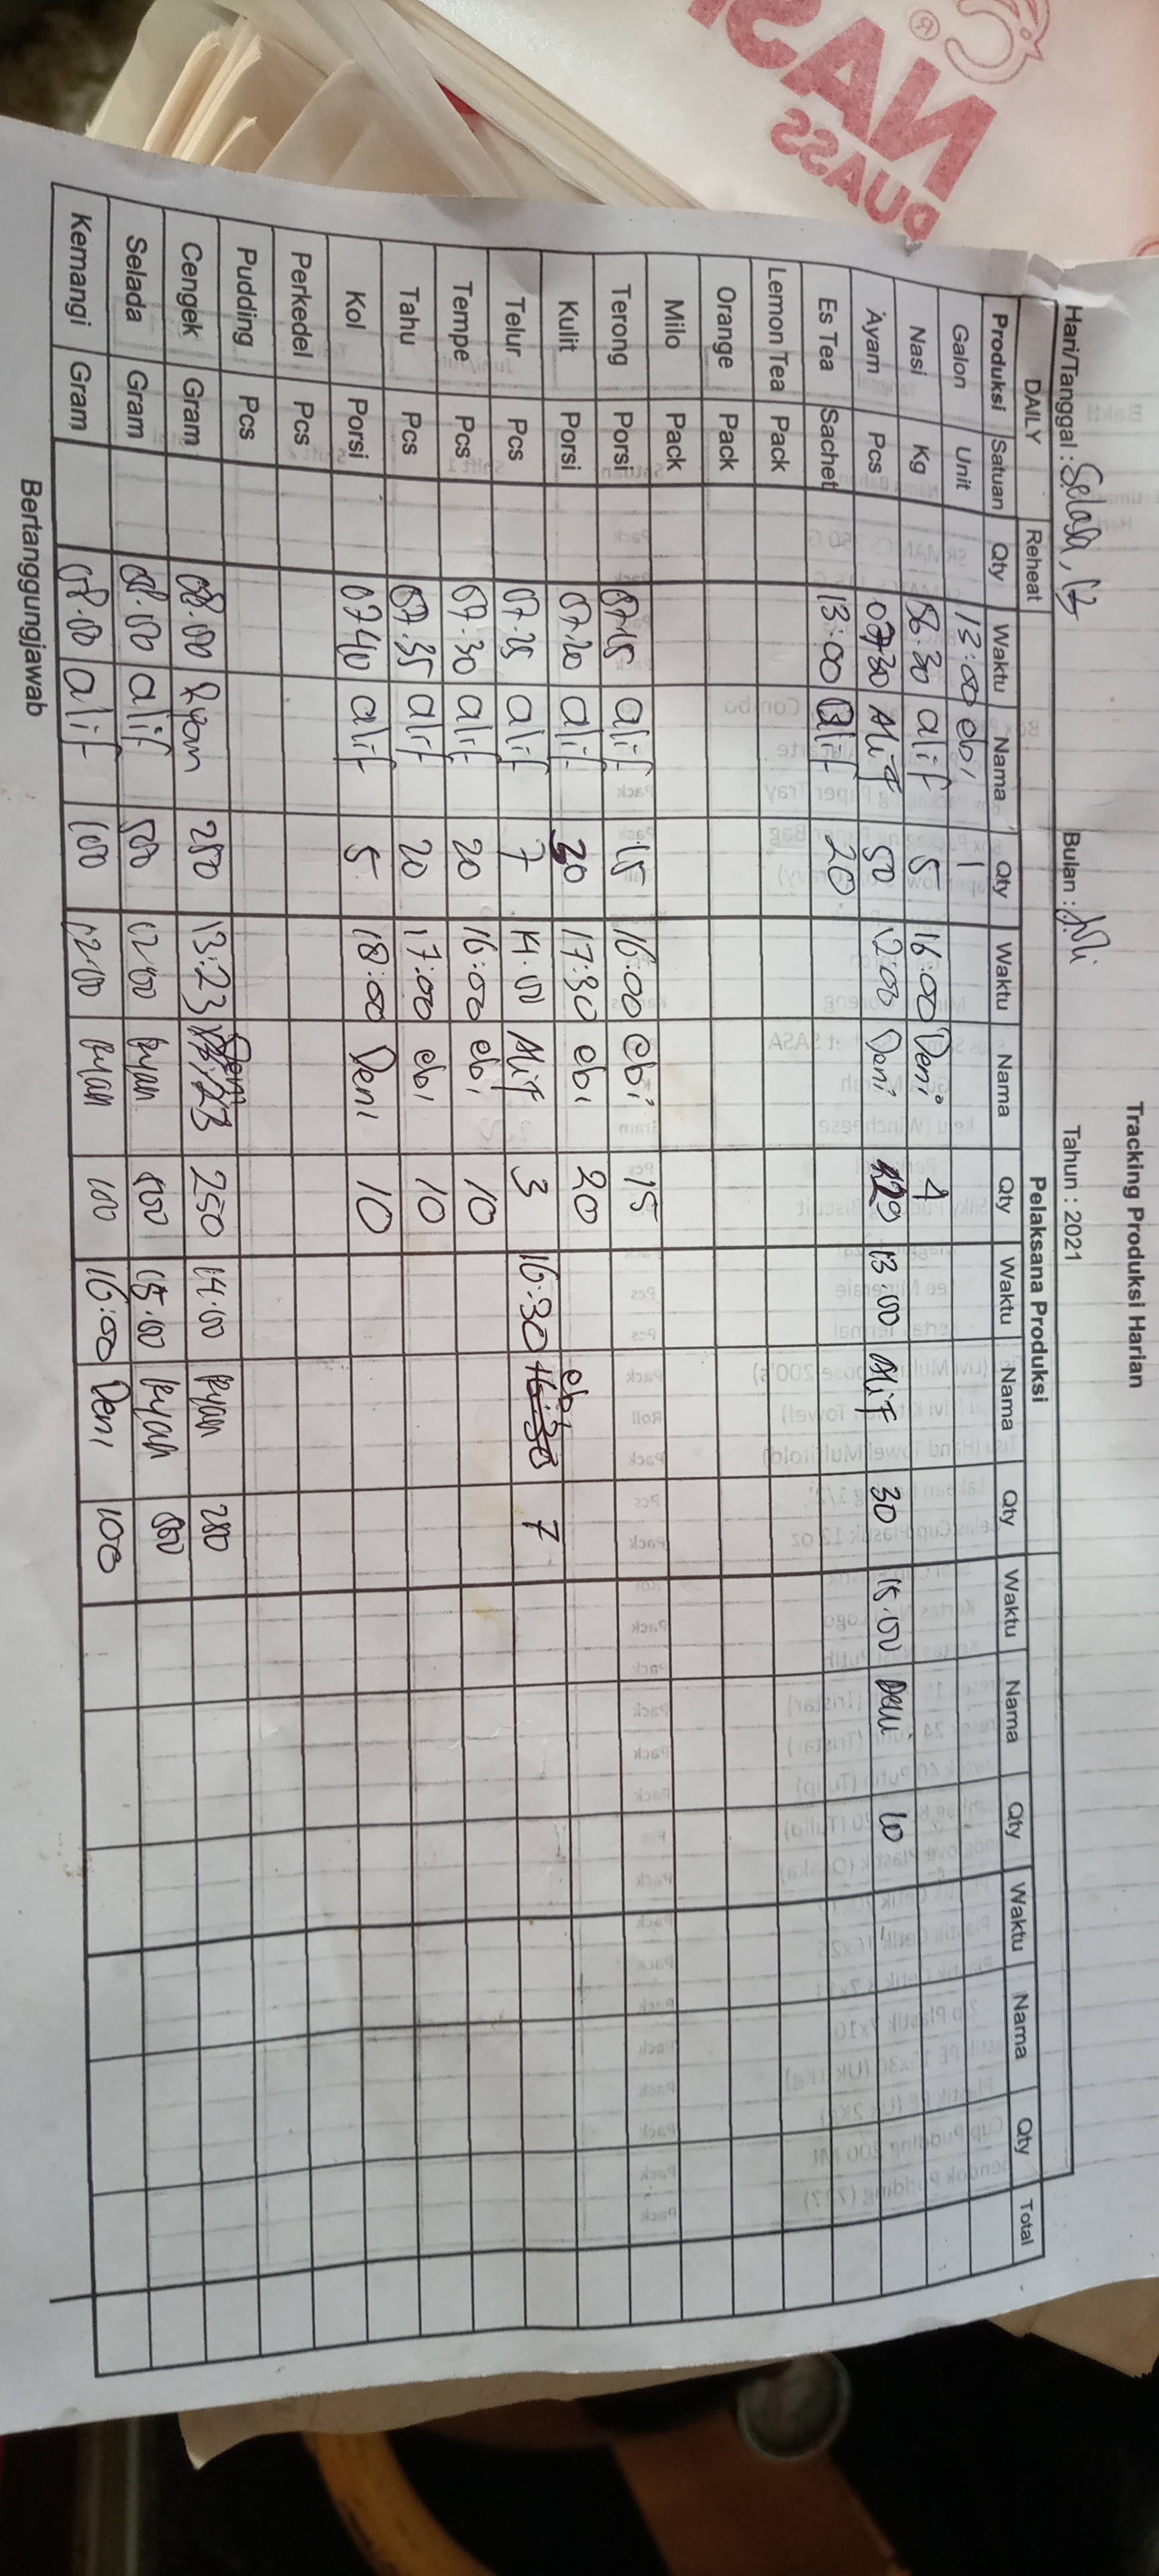 NASI
PUASS
Tracking Produksi Harian
Hari/Tanggal : Selasa, Bulan : Juli Tahun : 2021
DAILY Reheat Pelaksana Produksi
Produksi Satuan Qty Waktu Nama Qty Waktu Nama Qty Waktu Nama Qty Waktu Nama Qty Waktu Nama Qty Total
Galon Unit 13:00 ebi 1
Nasi Kg 06:30 alif 5 16:00 Deni 4
Ayam Pcs 07:30 Alif 50 12:00 Deni 20 13.00 Alif 30 15.00 Deni 10
Es Tea Sachet 13:00 alif 20
Lemon Tea Pack
Orange Pack
Milo Pack
Terong Porsi 07.15 alif 15 16:00 ebi 15
Kulit Porsi 07.20 alif 30 17:30 ebi 20
Telur Pcs 07.25 alif 7 14.00 Alif 3 16:30 ebi 7
Tempe Pcs 07.30 alif 20 16:00 ebi 10
Tahu Pcs 07.35 alif 20 17:00 ebi 10
Kol Porsi 07 40 alif 5 18:00 Deni 10
Perkedel Pcs
Pudding Pcs
Cengek Gram 08.00 Ryan 250 13:23 Deni 250 14.00 Ryan 250
Selada Gram 08.00 alif 500 12.00 Ryan 500 15.00 Ryan 500
Kemangi Gram 08.00 alif 100 12.00 Ryan 100 16:00 Deni 100
Bertanggungjawab